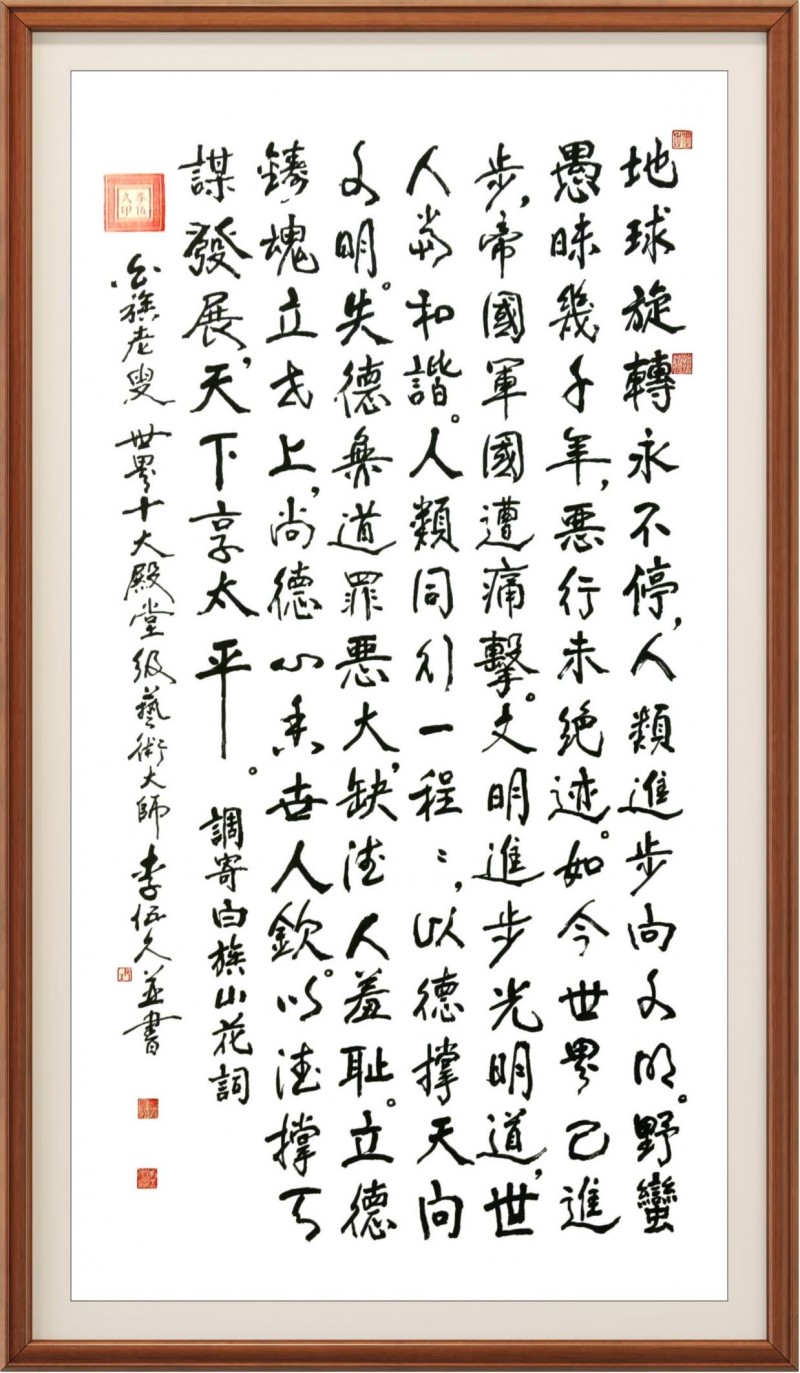 地球旋轉永不停，人類進步向文明。野蠻
愚昧幾千年，悪行未絶迹。如今世界已進
步，帝國軍國遭痛擊。文明進步光明道，世
人和諧。人類同行一程〻，以德撐天向
文明。失德無道罪悪大，缺德人羞耻。立德
鑄魂立世上，尚德心香世人欽。以德撐天
謀發展，天下享太平。
調寄白族山花詞
白族老叟 世界十大殿堂级藝術大師 李伍久並書
李伍久印